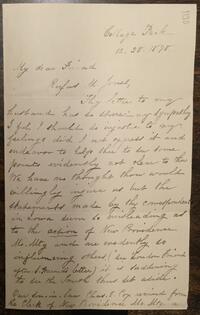 College Park
12. 28. 1898
My dear Friend
Rufus M Jones,
Thy letter to my
husband has so stirred my sympathy
I feel I should do injustice to my
feelings did I not express it and
endeavor to help thee to see some
points evidently not clear to thee
We have no thought thou would
willingly injure us but the
statements made by thy correspondent
in Iowa seem so misleading as
to the action of New Providence
Mo. Mtg and are evidently so
influencing others (see London Friend
letter) it is saddening
to see the Truth thus set aside.
Our cousin Chas. E. Cox writes from
the Clerk of New Providence Mo. Mtg a